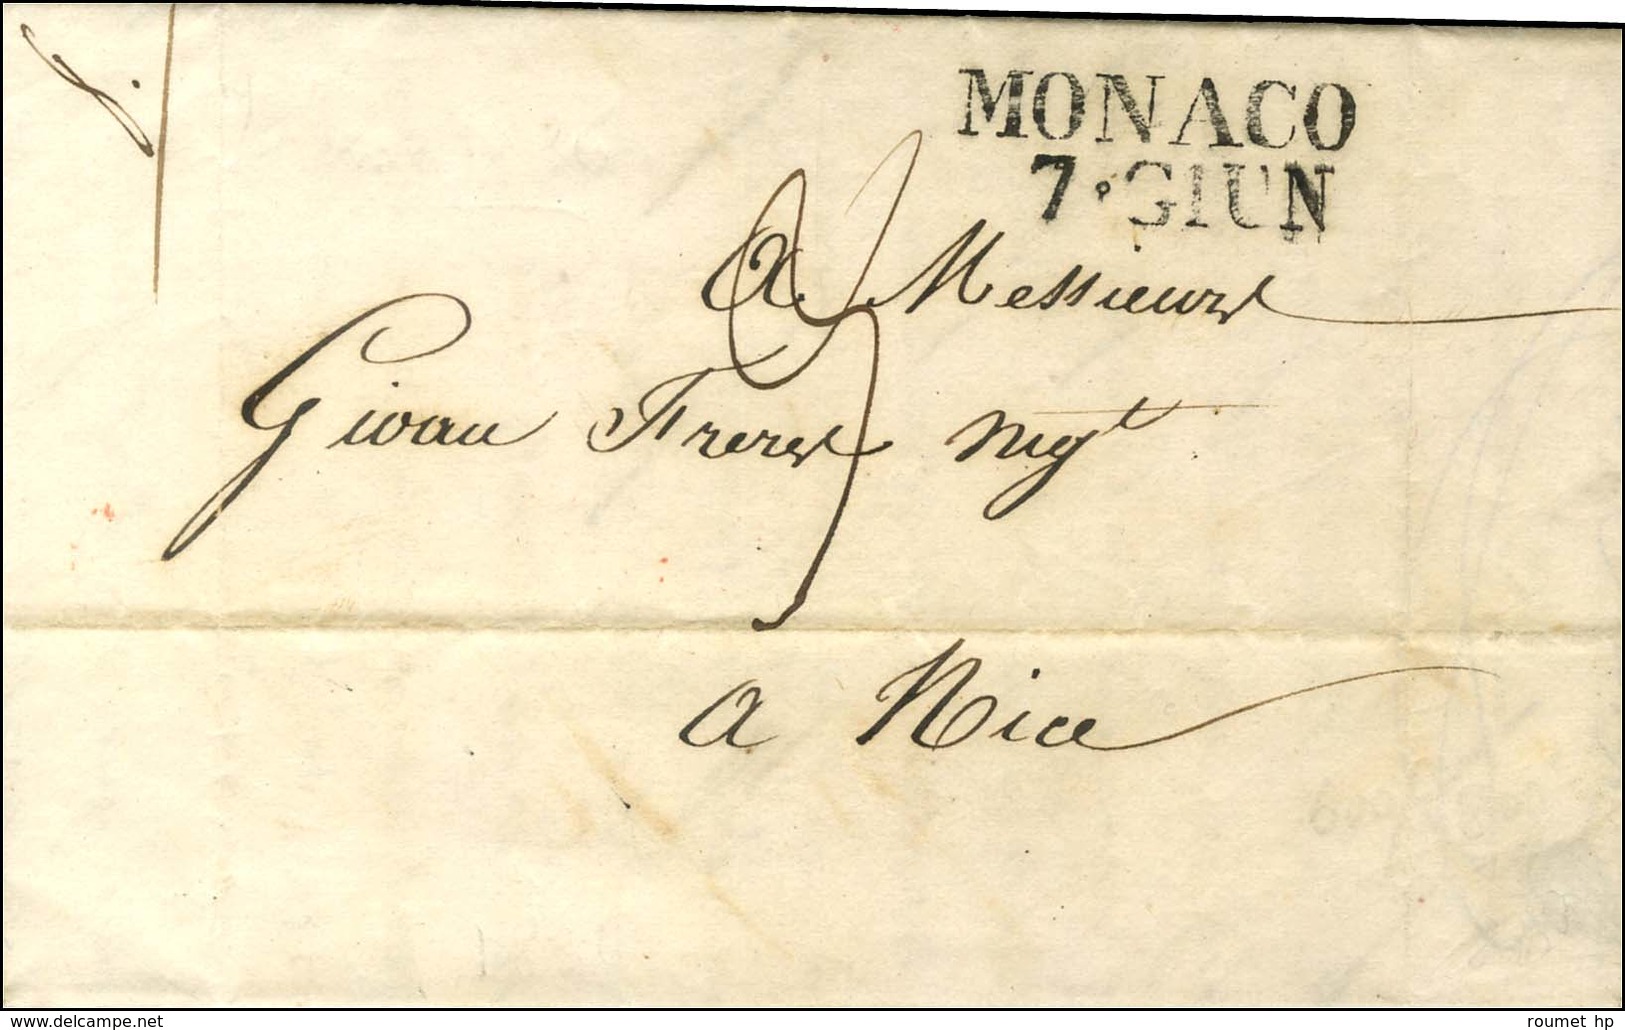 MONACO
7 GIUN
a Messieurs
Givan Freres Negt
a Nice
www.delcampe.net
roumet hp